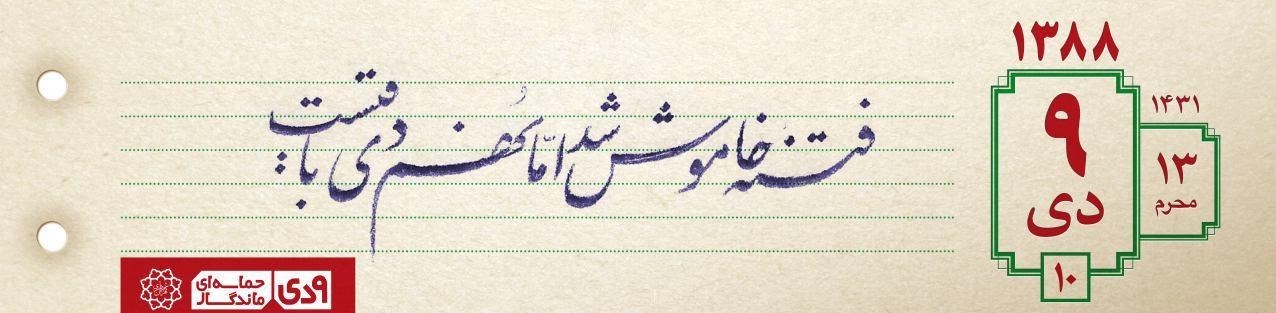 ۱۳۸۸
۹
دی
۱۰
۱۴۳۱
۱۳
محرم
فتنه خاموش شد اما نهم دی باقیست
۹دی
حماسه‌ای
ماندگار